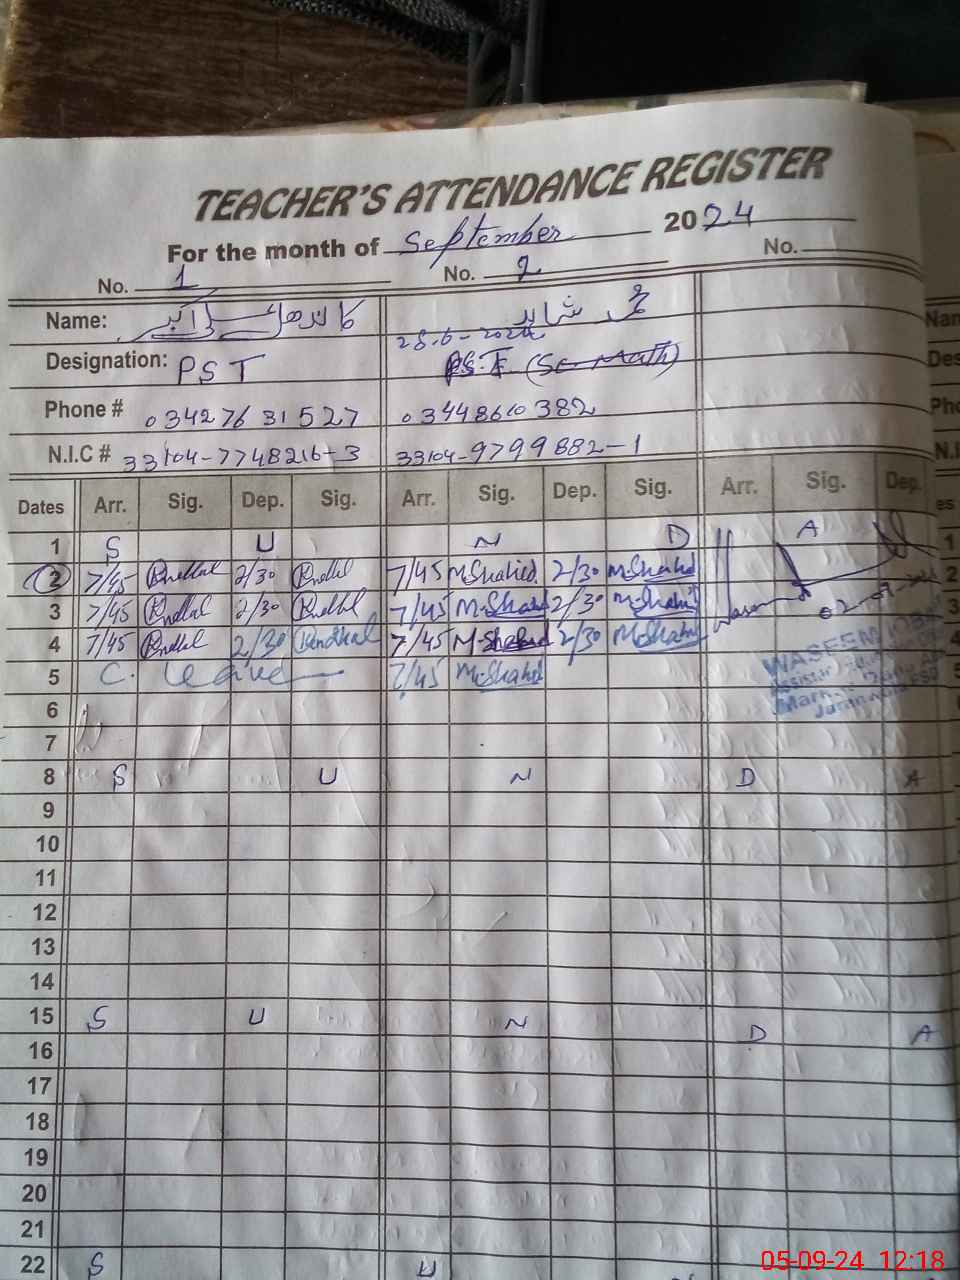 TEACHER'S ATTENDANCE REGISTER
For the month of September 2024
No. 1 No. 2 No.
Name: محمد شاہد
28.6-2024
Designation: PST PST (Sc-Math)
Phone # 03427631527 03448610382
N.I.C # 33104-7748216-3 33104-9799882-1
Dates Arr. Sig. Dep. Sig. Arr. Sig. Dep. Sig. Arr. Sig. Dep.
1 S U N D A
2 7/45 2/30 7/45 M.Shahid 2/30 M.Shahid
3 7/45 2/30 7/45 M.Shahid 2/30 M.Shahid
4 7/45 2/30 7/45 M.Shahid 2/30 M.Shahid
5 C. leave 7/45 M.Shahid
WASEEM
6
7
8 S U N D A
9
10
11
12
13
14
15 S U N D A
16
17
18
19
20
21
22 S U
05-09-24 12:18